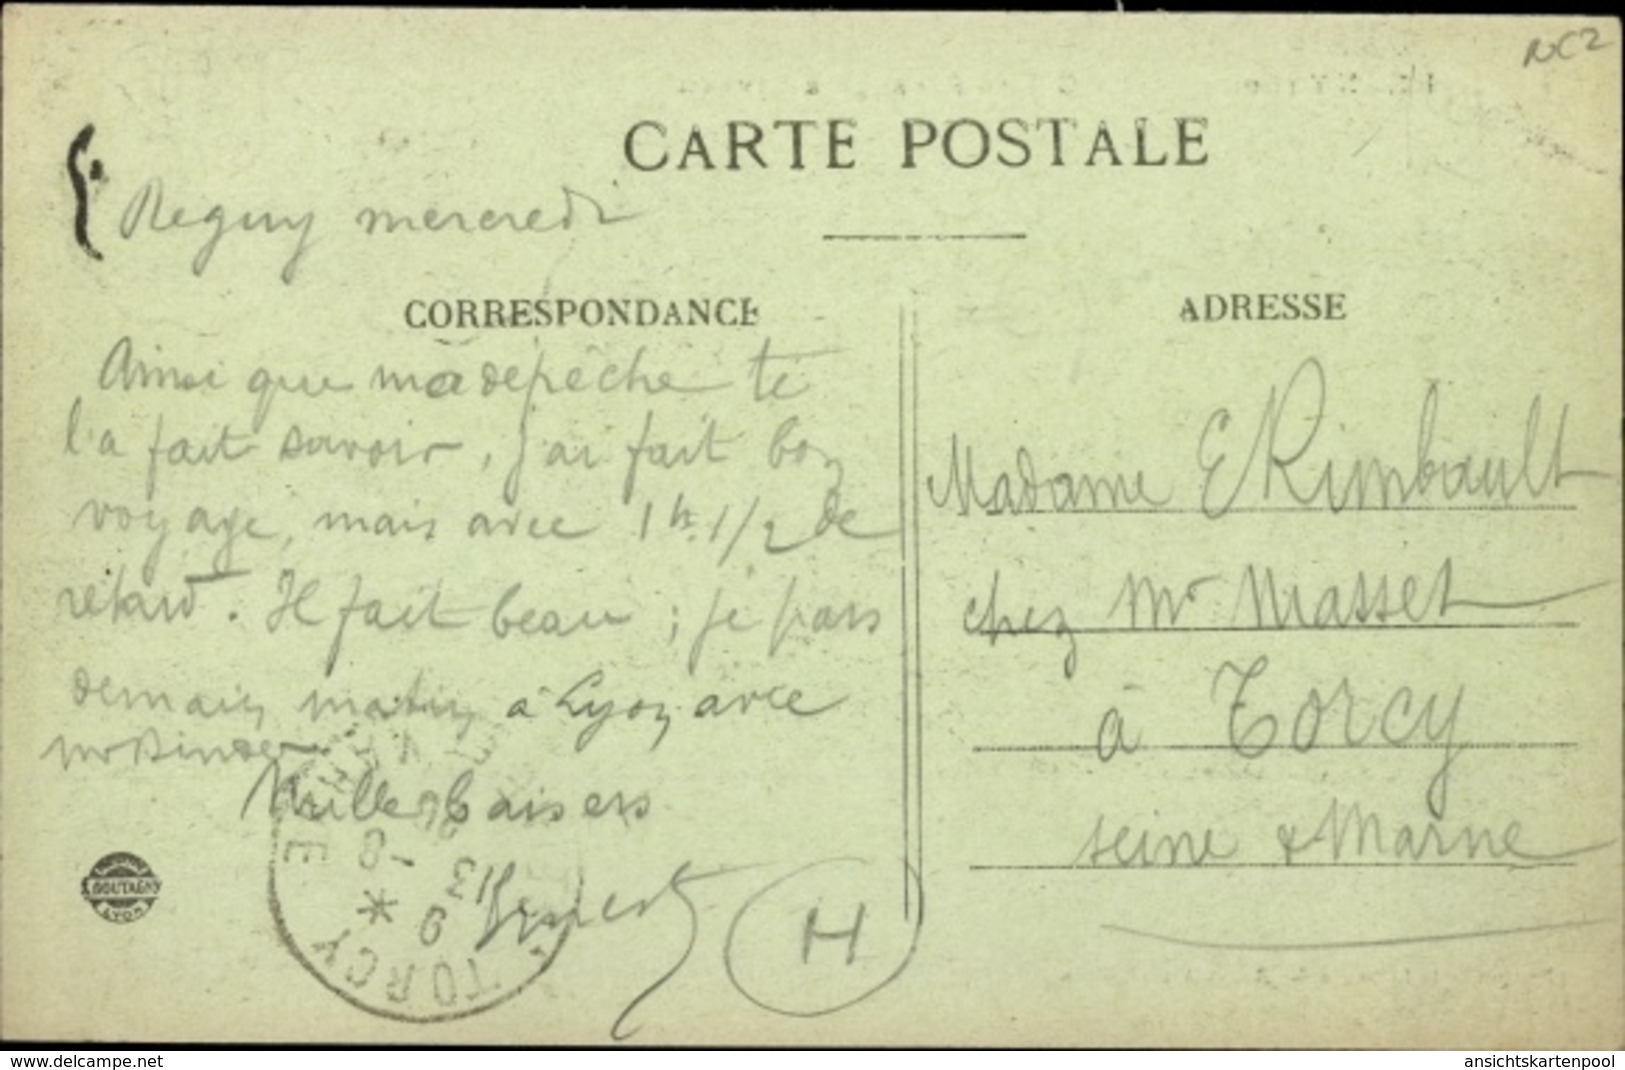 NC2
CARTE POSTALE
Regny mercredi
CORRESPONDANCE
Ainsi que ma depêche te
l'a fait savoir, j'ai fait bon
voyage, mais avec 1 h. 1/2 de
retard. Il fait beau ; je pars
demain matin à Lyon avec
Mr
Mille baisers
Ernest
ADRESSE
Madame E Rimbault
chez Mr Masset
à Torcy
seine & Marne
H
TORCY
9
13
GOUTAGNY
LYON
www.delcampe.net
ansichtskartenpool